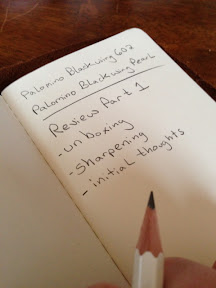 Palomino Blackwing 602
Palomino Blackwing Pearl
Review Part 1
- unboxing
- sharpening
- initial thoughts